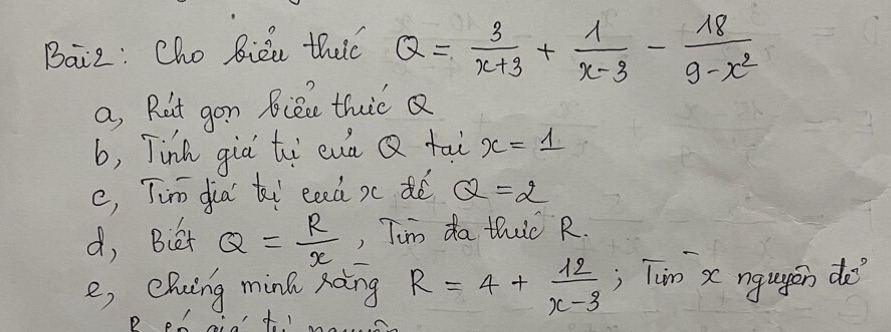 Bài 2: Cho biểu thức Q = 3/(x+3) + 1/(x-3) - 18/(9-x²)
a, Rút gọn biểu thức Q
b, Tính giá trị của Q tại x = 1
c, Tìm giá trị của x để Q = 2
d, Biết Q = R/x, Tìm đa thức R.
e, Chứng minh rằng R = 4 + 12/(x-3); Tìm x nguyên để
R có giá trị nguyên